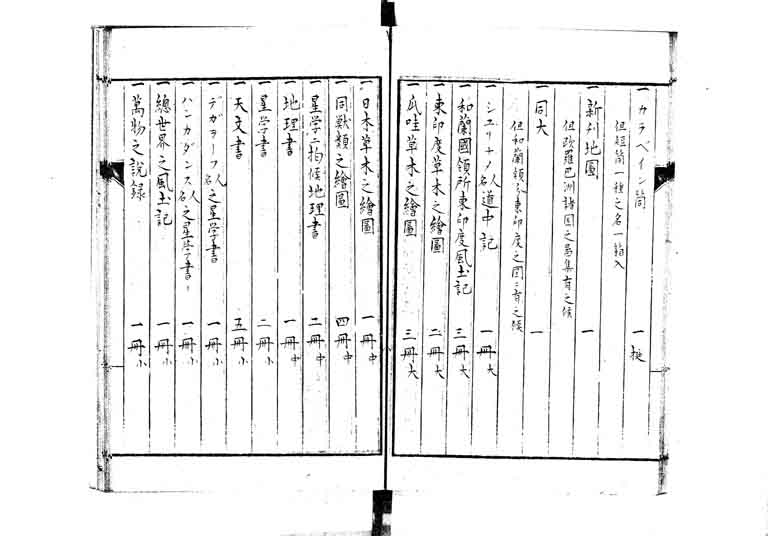 一カラベイン筒 一挺
但短筒一種之名一箱入
一新刊地圖 一
但欧羅巴洲諸国之島集有之候
一同大 一
但和蘭領分東印度之図ニ有之候
一シユリナメ名人道中記 一冊大
一和蘭國領所東印度風土記 三冊大
一東印度草木之繪圖 二冊大
一瓜哇草木之繪圖 三冊大
一日本草木之繪圖 一冊中
一同獣類之繪圖 四冊中
一星学ニ拘候地理書 二冊中
一地理書 一冊中
一星学書 二冊小
一天文書 五冊小
一デガラーフ人名之星学書 一冊小
一ハンカダンス人名之星学書 一冊小
一總世界之風土記 一冊小
一萬物之説録 一冊小